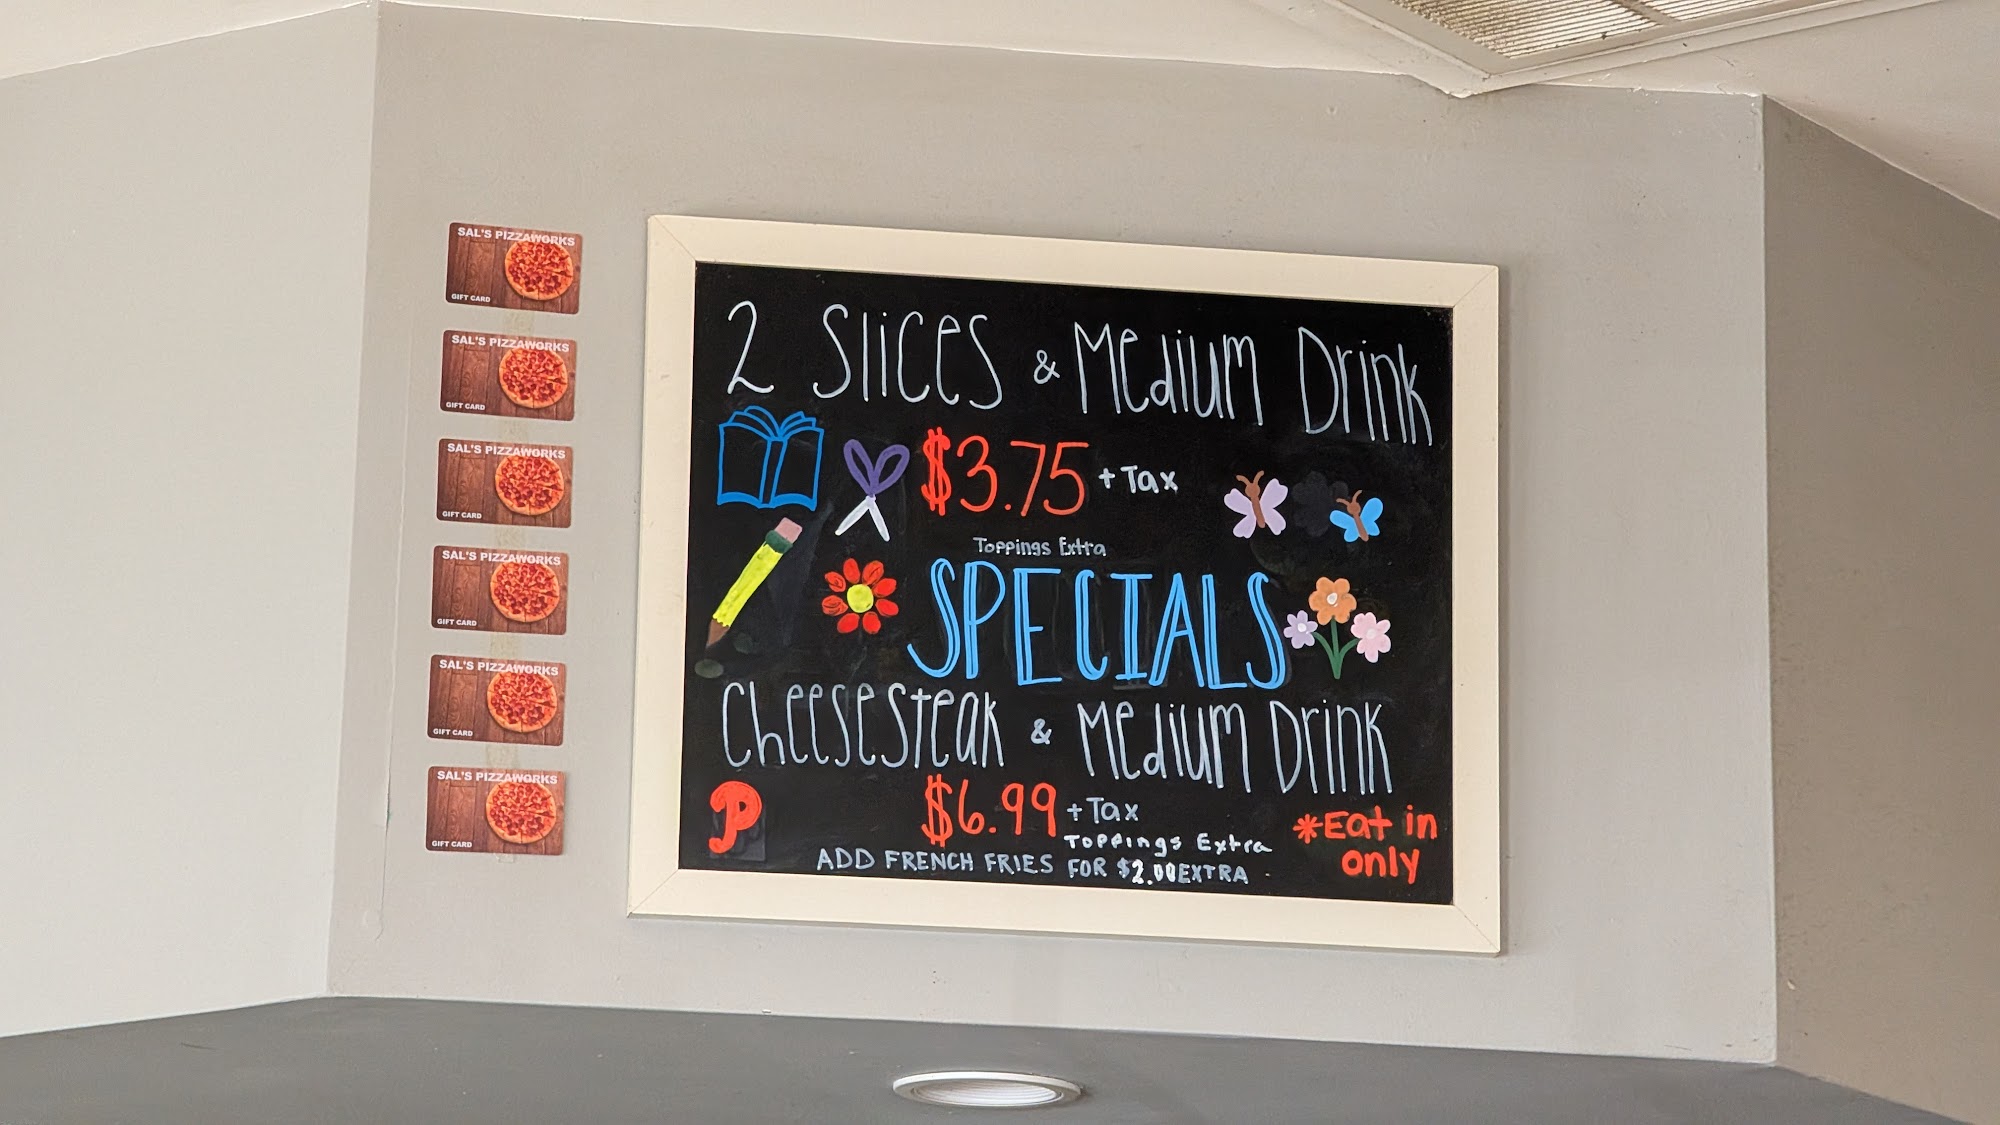 SAL'S PIZZAWORKS
GIFT CARD
SAL'S PIZZAWORKS
GIFT CARD
SAL'S PIZZAWORKS
GIFT CARD
SAL'S PIZZAWORKS
GIFT CARD
SAL'S PIZZAWORKS
GIFT CARD
SAL'S PIZZAWORKS
GIFT CARD
2 Slices & Medium Drink
$3.75 + Tax
Toppings Extra
SPECIALS
Cheesesteak & Medium Drink
P
$6.99 + Tax
Toppings Extra
ADD FRENCH FRIES FOR $2.00 EXTRA
*Eat in
only